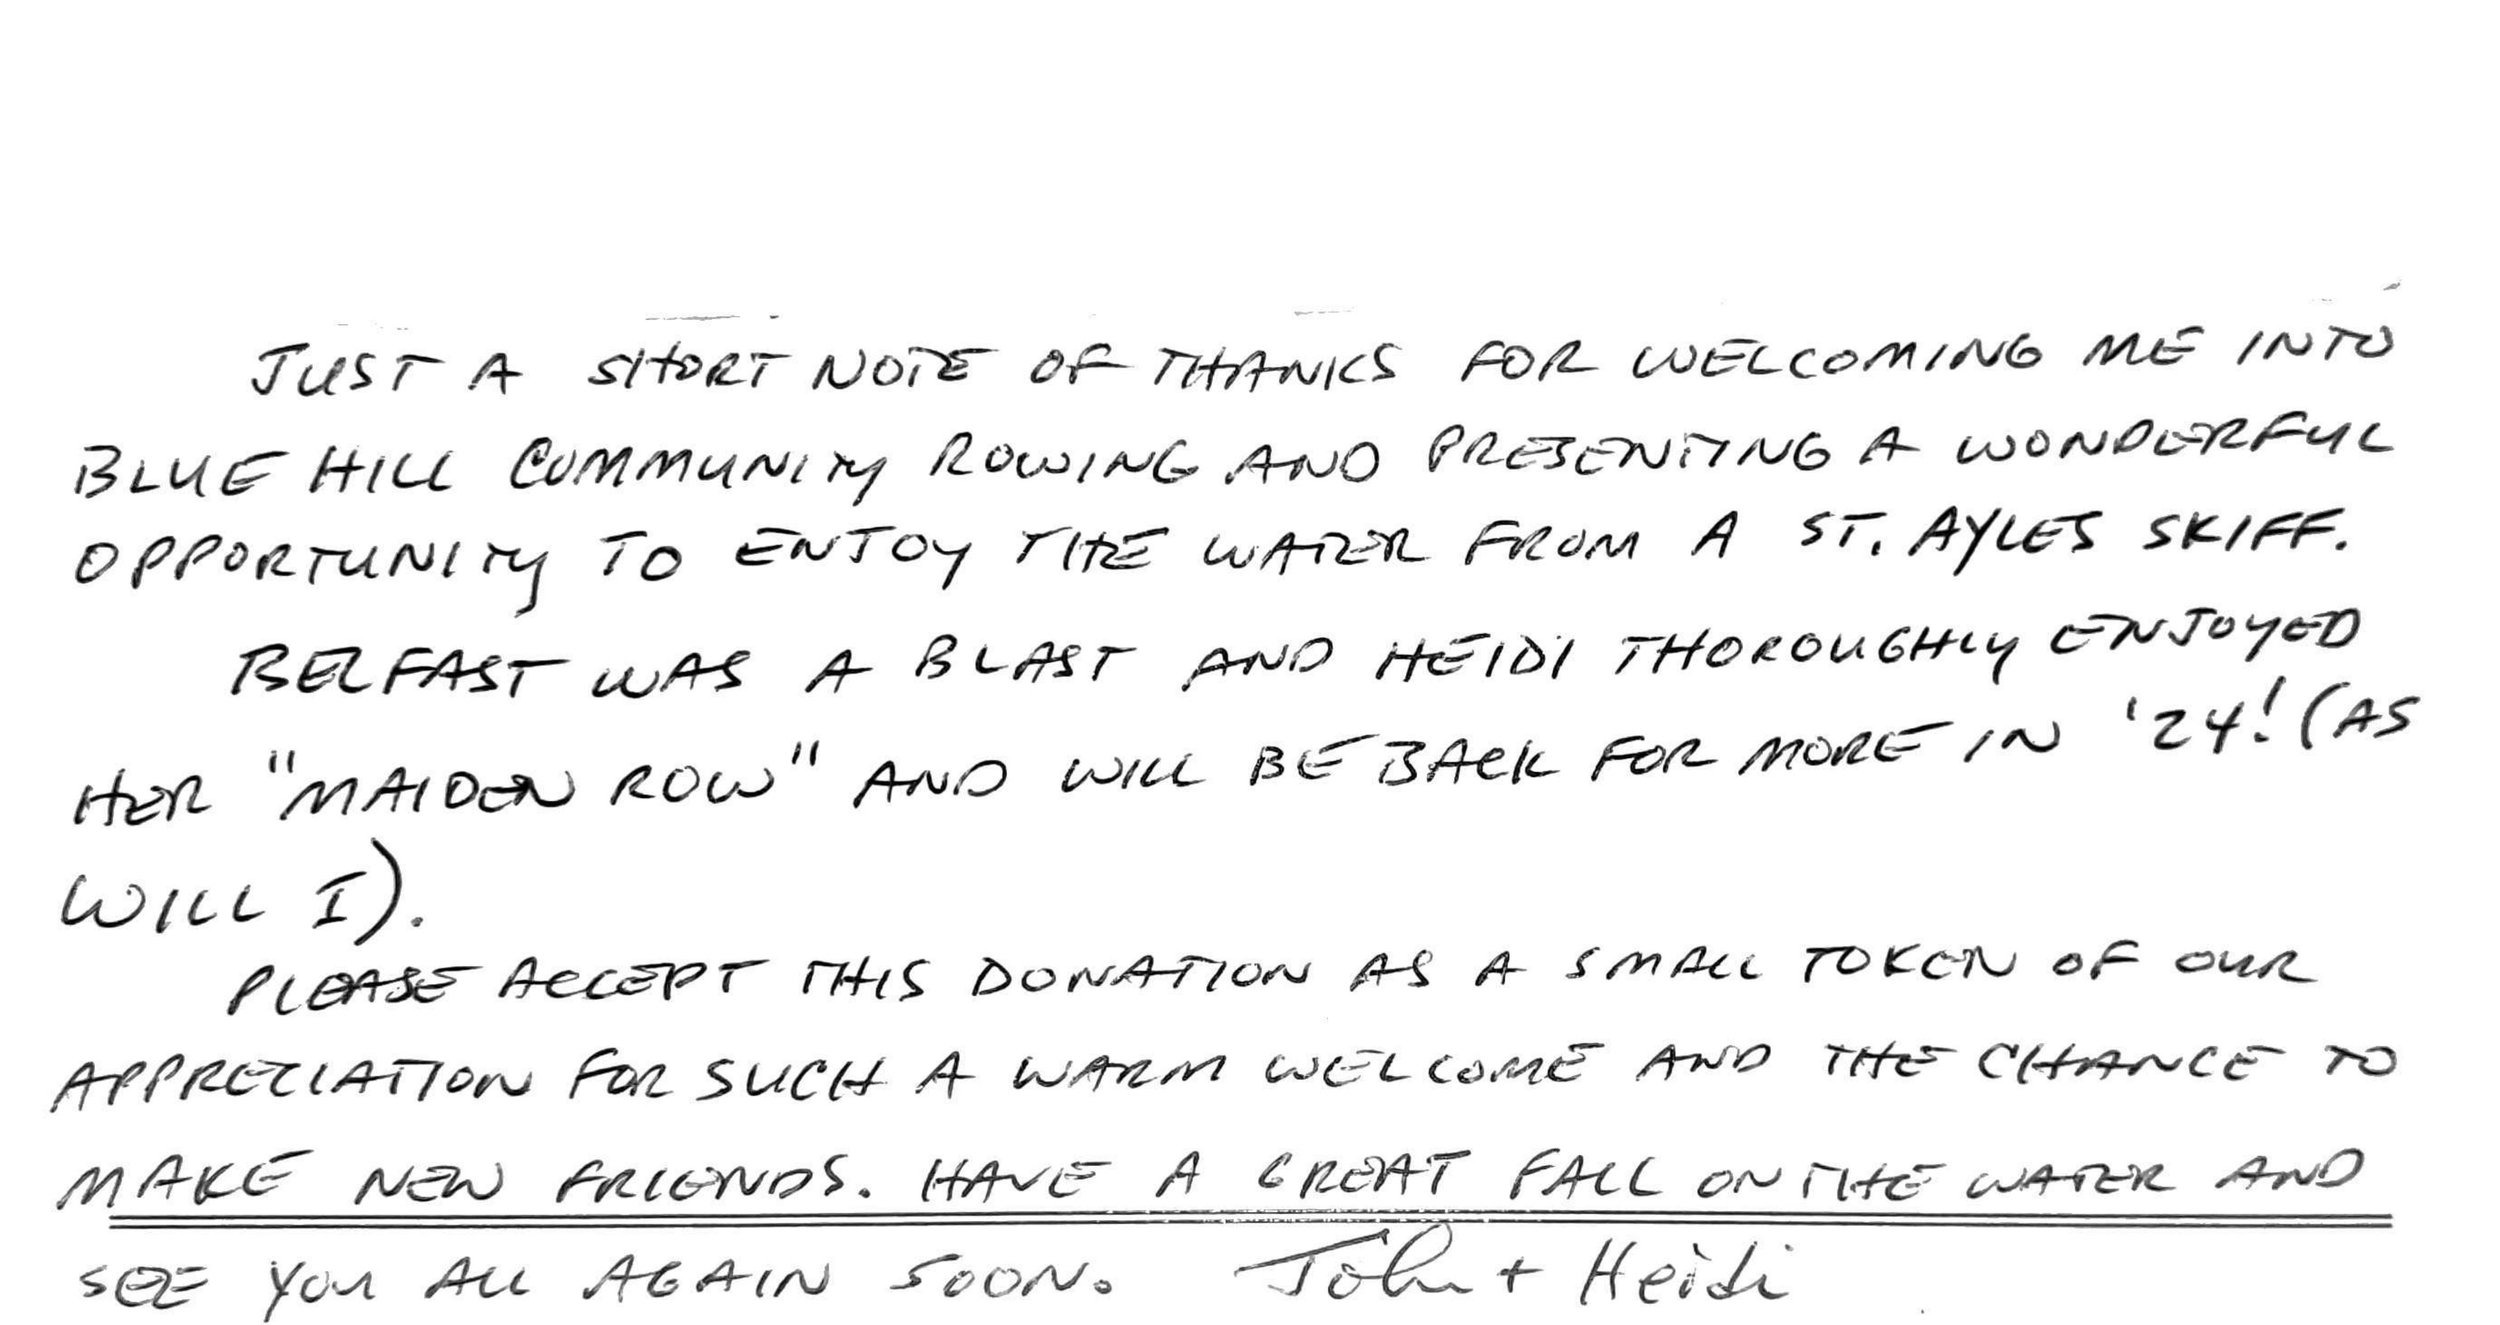 JUST A SHORT NOTE OF THANKS FOR WELCOMING ME INTO
BLUE HILL COMMUNITY ROWING AND PRESENTING A WONDERFUL
OPPORTUNITY TO ENJOY THE WATER FROM A ST. AYLES SKIFF.
BELFAST WAS A BLAST AND HEIDI THOROUGHLY ENJOYED
HER "MAIDEN ROW" AND WILL BE BACK FOR MORE IN '24! (AS
WILL I).
PLEASE ACCEPT THIS DONATION AS A SMALL TOKEN OF OUR
APPRECIATION FOR SUCH A WARM WELCOME AND THE CHANCE TO
MAKE NEW FRIENDS. HAVE A GREAT FALL ON THE WATER AND
SEE YOU ALL AGAIN SOON. John + Heidi